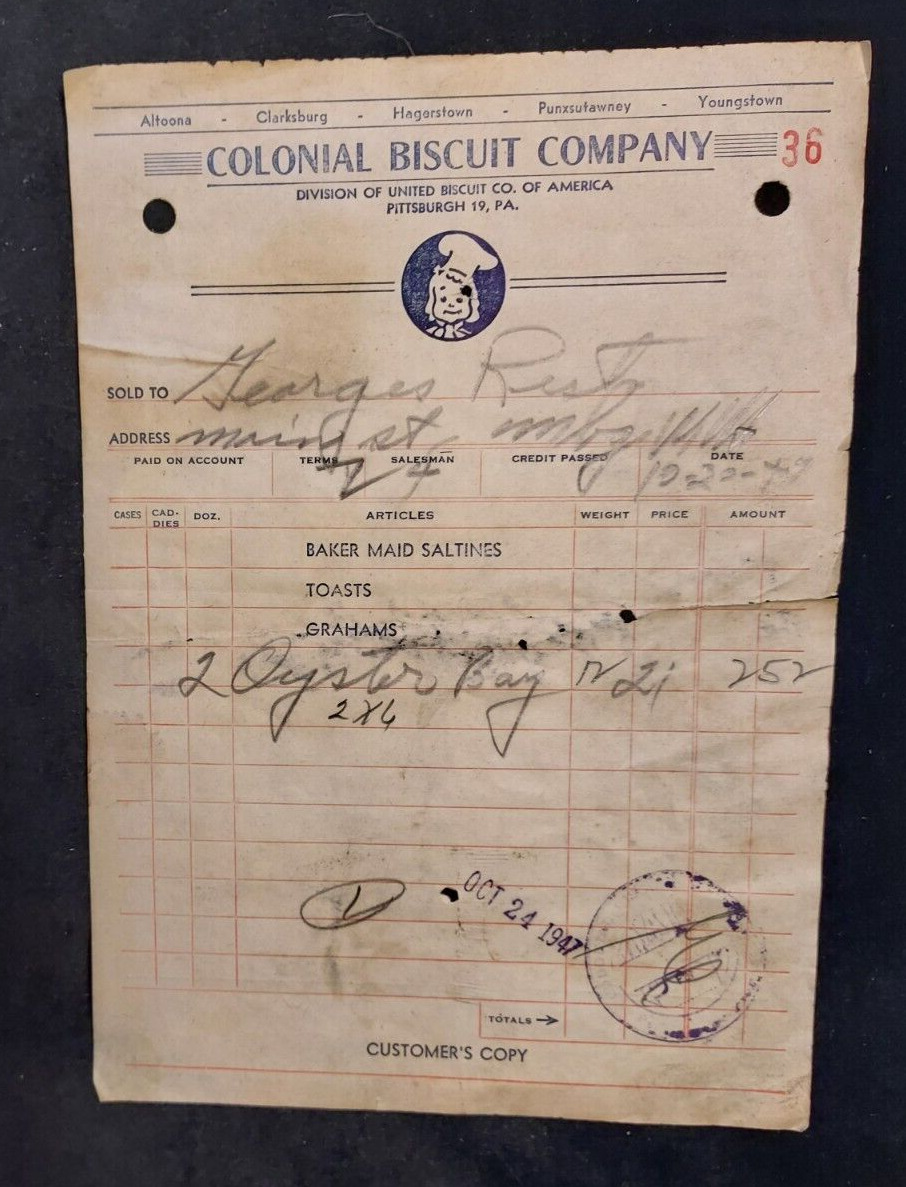 Altoona - Clarksburg - Hagerstown - Punxsutawney - Youngstown
COLONIAL BISCUIT COMPANY 36
DIVISION OF UNITED BISCUIT CO. OF AMERICA
PITTSBURGH 19, PA.
SOLD TO Georges Rest
ADDRESS main st
PAID ON ACCOUNT TERMS SALESMAN CREDIT PASSED DATE
CASES CAD-DIES DOZ. ARTICLES WEIGHT PRICE AMOUNT
BAKER MAID SALTINES
TOASTS
GRAHAMS
2 Oyster Bay 12 21 252
2X6
1 OCT 24 1947
TOTALS →
CUSTOMER'S COPY